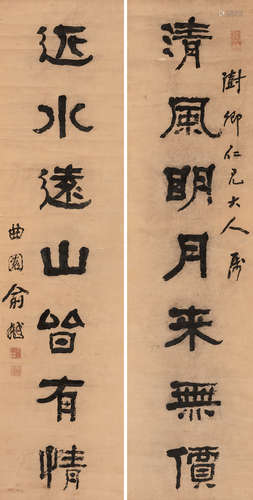 清風明月来無價
樹卿仁兄大人屬
近水遠山皆有情
曲園俞樾